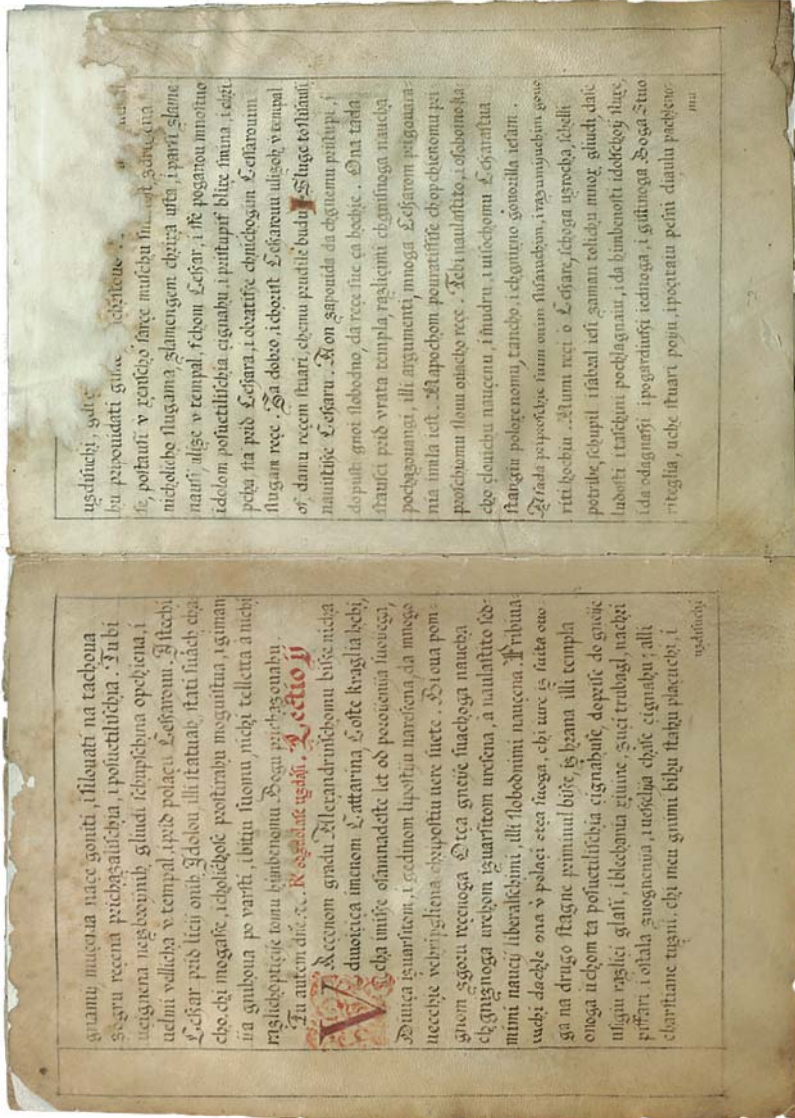 gnamu mucenia nace goniti, i ſilouati na tachoua
ſogru recena prichazaliſchia, i poſuetiliſchia. Tu bi
ucignena neizbroynih gliudi ſchupſchina opchiena, i
uelmi vellicha v tempal, i prid polacu Ceſſarouu. A ſtechi
Ceſsar prid licij onih Idolou, illi ſtatuah, ſtati ſuach cha
cho, chi mogaſe, i cholichoſe proſtirahu moguiſtua, i giman
ia gnihoua po varſti, i bittiu ſuomu, nichi telletta a nichi
razlichopticije tomu himbenomu Bogu prichazouahu
Tu autem dñe &c. R̃ odzuolaſe uzdaſi. Lectio ij
V Recenom gradu Alexandrinſchomu biſse nicha
dwoicica imenom Cattarina, Coſte kraglia hchi,
cha imiſse oſamnadeſte let od poroienia ſuouega,
Diuica izuarſitom, i gedinom lipoſtiu nareſena, da mnogo
uecchie vchripgliena chripoſtiu uere ſuete. Bi oua pom
gnom zgoru recenoga Otca gneije ſuachoga naucha
chgniznoga urchom izuarſitom ureſena, a naulaſtito ſed:
mimi naucij liberalſchimi, illi ſlobodnimi naucena. Pribiua:
uachi dachle ona v polaci otca ſuoga, chi uire iz ſuita ouo
ga na drugo ſtagne priminul biſse, iz hrana illi templa
onoga u chom ta poſuetiliſchia cignahuſe, dopriſe do gneije
uſigiu razlici glaſi, i blechania ziuine, zuci trubagl nachri
piffari, i oſtala zuognenia, i ueſelija chaſe cignahu, alli
charſtiane tuzni, chi meu gnimi bihu ſtahu placuchi, i
uzdiſuchi
uzdiſuchi, gdi e
hu pripouidati
ſe, poſtauſi v zenſcho ſarce muſchu
nicholicho ſlugama, zlamengem chrixa uſta, i parſi zlame
nauſi, ulize v tempal, ſ chom Ceſsar, i ſſe poganou mnoſtuo
idolom poſuetiliſchia cignahu, i priſtupiſ blixe ſmina, i chri
pcha, ſta prid Ceſsara, i obratiſse chnichogim Ceſſarouim
ſlugam rece. Za dobro, i choriſt Ceſsarouu ulizoh v tempal
oſ da mu recem ſtuari, chemu prudile budu. Sluge to ſliſauſi
nauiſtiſse Ceſsaru. A on zapouida da chgnemu priſtupi, i
dopuſti gnoi ſlobodno, da rece ſue ca hochie. Ona tada
ſtauſci prid vrata templa, razlicimi chgniſnoga naucha
pochazouangi, illi argumenti, mnoga Ceſsarom prigouara:
nia imila ieſt. Napochom pouratiſſiſe chopchienomu pri
proſchiomu ſlouu ouacho rece. Tebi naulaſtito, i oſobomo ka:
cho clouichu naucenu, i mudru, i uiſochomu Ceſsarſtua
ſtangiu polozenomu, tancho, i chgniuno gouorilla ieſam.
A ſada priproſchie ſuim onim ſliſauchim, i razumijuchim gouo
riti hochiu. A tumi reci o Ceſſare, ſchoga uzrocha, ſchelli
potribe, ſchupil i ſabral ieſi zaman tolichu mnoz gliudi daſe
ludoſti i taſchini pochlagnaiu, i da himbenoſti idolſchoj ſluze,
i da odagnaſi i pogardiuſi iednoga, i giſtinoga Boga Stuo
riteglia, uche ſtuari poyu, i pocitaiu peſni diaulu pachleno:
mu